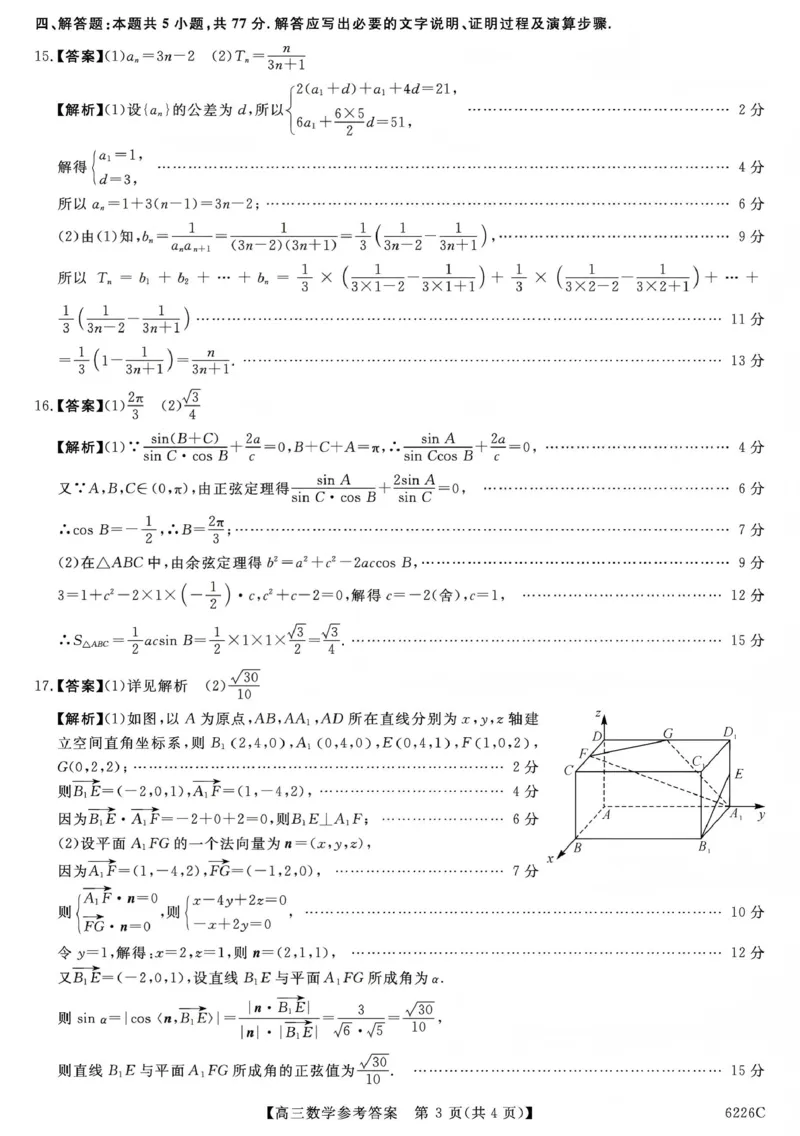 四、解答题:本题共 5 小题,共 77 分.解答应写出必要的文字说明、证明过程及演算步骤.
15.【答案】(1)aₙ=3n−2 (2)Tₙ=n/(3n+1)
【解析】(1)设{aₙ}的公差为 d,所以{2(a₁+d)+a₁+4d=21, 6a₁+(6×5)/2 d=51, …… 2 分
解得{a₁=1, d=3, …… 4 分
所以 aₙ=1+3(n−1)=3n−2; …… 6 分
(2)由(1)知,bₙ=1/(aₙaₙ₊₁)=1/((3n−2)(3n+1))=1/3(1/(3n−2)−1/(3n+1)), …… 9 分
所以 Tₙ = b₁ + b₂ + … + bₙ = 1/3 × (1/(3×1−2)−1/(3×1+1)) + 1/3 × (1/(3×2−2)−1/(3×2+1)) + … +
1/3(1/(3n−2)−1/(3n+1)) …… 11 分
=1/3(1−1/(3n+1))=n/(3n+1). …… 13 分
16.【答案】(1)2π/3 (2)√3/4
【解析】(1)∵sin(B+C)/(sin C·cos B)+2a/c=0,B+C+A=π,∴sin A/(sin Ccos B)+2a/c=0, …… 4 分
又∵A,B,C∈(0,π),由正弦定理得 sin A/(sin C·cos B)+2sin A/sin C=0, …… 6 分
∴cos B=−1/2,∴B=2π/3; …… 7 分
(2)在△ABC中,由余弦定理得 b²=a²+c²−2accos B, …… 9 分
3=1+c²−2×1×(−1/2)·c,c²+c−2=0,解得 c=−2(舍),c=1, …… 12 分
∴S△ABC=1/2 acsin B=1/2×1×1×√3/2=√3/4. …… 15 分
17.【答案】(1)详见解析 (2)√30/10
【解析】(1)如图,以 A 为原点,AB,AA₁,AD 所在直线分别为 x,y,z 轴建
立空间直角坐标系,则 B₁(2,4,0),A₁(0,4,0),E(0,4,1),F(1,0,2),
G(0,2,2); …… 2 分
则B₁E→=(−2,0,1),A₁F→=(1,−4,2), …… 4 分
因为B₁E→·A₁F→=−2+0+2=0,则B₁E⊥A₁F; …… 6 分
(2)设平面 A₁FG 的一个法向量为 n=(x,y,z),
因为A₁F→=(1,−4,2),FG→=(−1,2,0), …… 7 分
则{A₁F→·n=0 FG→·n=0,则{x−4y+2z=0 −x+2y=0, …… 10 分
令 y=1,解得:x=2,z=1,则 n=(2,1,1), …… 12 分
又B₁E→=(−2,0,1),设直线 B₁E 与平面 A₁FG 所成角为 α.
则 sin α=|cos〈n,B₁E→〉|=|n·B₁E→|/(|n|·|B₁E→|)=3/(√6·√5)=√30/10,
则直线 B₁E 与平面 A₁FG 所成角的正弦值为√30/10. …… 15 分
z
D G D₁
F
C C₁ E
A A₁ y
B B₁
x
【高三数学参考答案 第 3 页(共 4 页)】 6226C